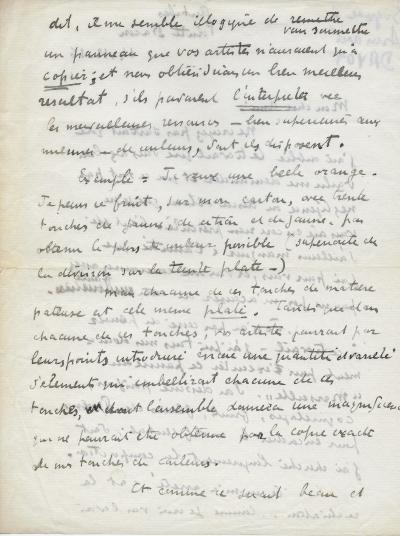 dit, il me semble illogique de remettre
vous soumettre
un panneau que vos artistes n'auraient qu'à
copier; et nous obtiendrions un bien meilleur
resultat, s'ils pouvaient l'interpreter avec
les merveilleuses ressources — bien superieures aux
miennes — de couleurs, dont ils disposent.
Exemple = Je veux une belle orange.
Je peins ce fruit, sur mon carton, avec trente
touches de jaune, de citron et de jaune, pour
obtenir le plus de couleur possible (superiorité de
la division sur la teinte plate —)
mais chacune de ces touches de matière
pateuse est elle meme plate. Tandis que dans
chacune de ces touches, vos artistes pourront par
leurs points introduire encore une quantité de varieté
d'elements qui embelliront chacune de ces
touches, dont l'ensemble donnera une magnificence
qui ne pourrait etre obtenue par la copie exacte
de mes touches de couleurs.
Et comme ce serait beau et